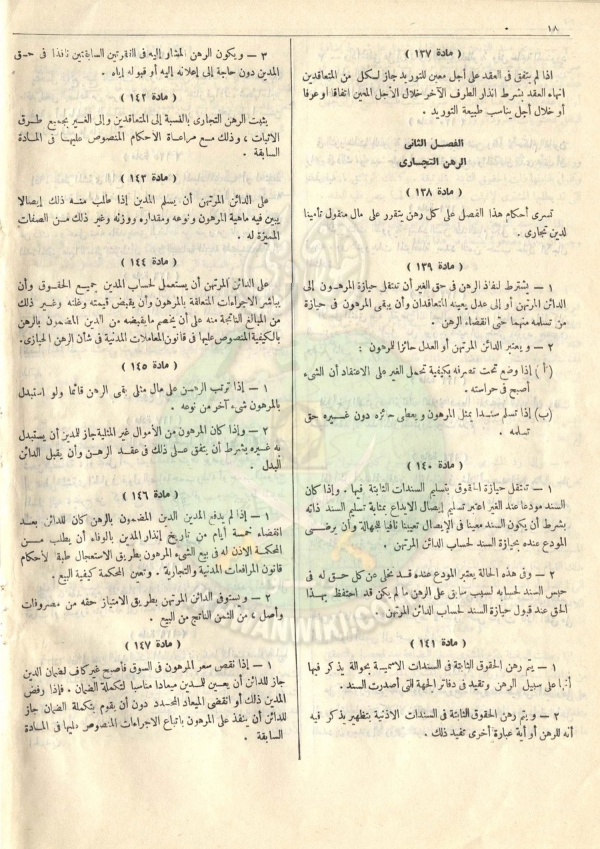 ١٨
( مادة ١٣٧ )
اذا لم يتفق فى العقد على أجل معين للتوريد جاز لـكل من المتعاقدين
انهاء العقد بشرط انذار الطرف الآخر خلال الأجل المعين اتفاقا او عرفا
أو خلال أجل يناسب طبيعة التوريد .
الفصل الثانى
الرهن التجارى
( مادة ١٣٨ )
تسرى أحكام هذا الفصل على كل رهن يتقرر على مال منقول تأمينا
لدين تجارى .
( مادة ١٣٩ )
١ – يشترط لنفاذ الرهن فى حق الغير أن تنتقل حيازة المرهون إلى
الدائن المرتهن أو إلى عدل يعينه المتعاقدان وأن يبقى المرهون فى حيازة
من تسلمه منهما حتى انقضاء الرهن .
٢ – و يعتبر الدائن المرتهن أو العدل حائزا للمرهون :
( أ ) إذا وضع تحت تصرفه بكيفية تحمل الغير على الاعتقاد أن الشىء
أصبح فى حراسته .
(ب) إذا تسلم سندا يمثل المرهون و يعطى حائزه دون غيره حق
تسلمه .
( مادة ١٤٠ )
١ – تنتقل حيازة الحقوق بتسليم السندات الثابتة فيها . وإذا كان
السند مودعا عند الغير اعتبر تسليم إيصال الايداع بمثابة تسليم السند ذاته
بشرط أن يكون السند معينا فى الإيصال تعيينا نافيا للجهالة وأن يرضى
المودع عنده بحيازة السند لحساب الدائن المرتهن .
٢ – وفى هذه الحالة يعتبر المودع عنده قد تخلى عن كل حق له فى
حبس السند لحسابه لسبب سابق على الرهن ما لم يكن قد احتفظ بهذا
الحق عند قبول حيازة السند لحساب الدائن المرتهن .
( مادة ١٤١ )
١ – يتم رهن الحقوق الثابتة فى السندات الاسمية بحوالة يذكر فيها
أنها على سبيل الرهن وتقيد فى دفاتر الجهة التى أصدرت السند .
٢ – و يتم رهن الحقوق الثابتة فى السندات الاذنية بتظهير يذكر فيه
أنه للرهن أو أية عبارة أخرى تفيد ذلك .
٣ – ويكون الرهن المشار إليه فى الفقرتين السابقتين نافذا فى حق
المدين دون حاجة إلى إعلانه إليه أو قبوله إياه .
( مادة ١٤٢ )
يثبت الرهن التجارى بالنسبة إلى المتعاقدين وإلى الغير بجميع طرق
الاثبات ، وذلك مع مراعاة الاحكام المنصوص عليها فى المادة
السابقة .
( مادة ١٤٣ )
على الدائن المرتهن أن يسلم المدين إذا طلب منه ذلك إيصالا
يبين فيه ماهية المرهون ونوعه ومقداره ووزنه وغير ذلك من الصفات
المميزة له .
( مادة ١٤٤ )
على الدائن المرتهن أن يستعمل لحساب المدين جميع الحقوق وأن
يباشر الاجراءات المتعلقة بالمرهون وأن يقبض قيمته وغلته وغير ذلك
من المبالغ الناتجة منه على أن يخصم مايقبضه من الدين المضمون بالرهن
بالكيفية المنصوص عليها فى قانون المعاملات المدنية فى شأن الرهن الحيازى.
( مادة ١٤٥ )
١ – إذا ترتب الرهن على مال مثلى بقى الرهن قائما ولو استبدل
بالمرهون شىء آخر من نوعه .
٢ – وإذا كان المرهون من الأموال غير المثلية جاز للمدين أن يستبدل
به غيره بشرط أن يتفق على ذلك فى عقد الرهن وأن يقبل الدائن
البدل .
( مادة ١٤٦ )
١ – إذا لم يدفع المدين الدين المضمون بالرهن كان للدائن بعد
انقضاء خمسة أيام من تاريخ إنذار المدين بالوفاء أن يطلب من
المحكمة الاذن له فى بيع الشىء المرهون بطريق الاستعجال طبقا لأحكام
قانون المرافعات المدنية والتجارية . وتعين المحكمة كيفية البيع .
٢ – و يستوفى الدائن المرتهن بطريق الامتياز حقه من مصروفات
وأصل ، من الثمن الناتج من البيع .
( مادة ١٤٧ )
١ – إذا نقص سعر المرهون فى السوق فأصبح غير كاف لضمان الدين
جاز للدائن أن يعين للمدين ميعادا مناسبا لتكملة الضمان . فإذا رفض
المدين ذلك أو انقضى الميعاد المحدد دون أن يقوم بتكملة الضمان جاز
للدائن أن ينفذ على المرهون باتباع الاجراءات المنصوص عليها فى المادة
السابقة .